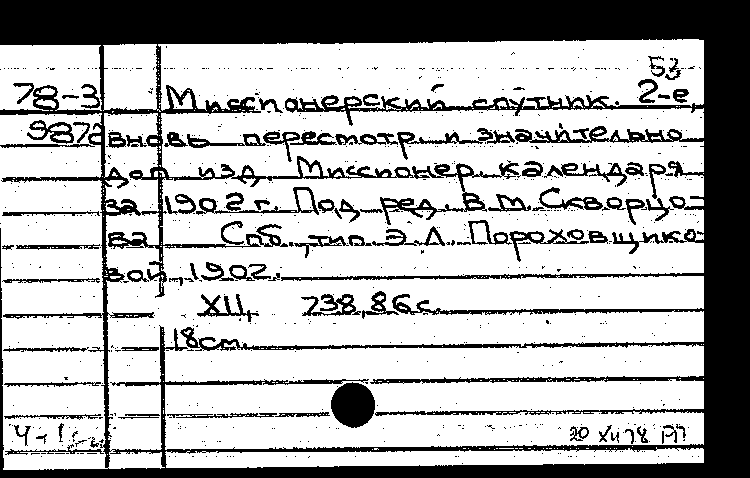 53
78-3 Миссионерский спутник. 2-е,
9872 вновь пересмотр. и значительно
доп изд. Миссионер. календаря
за 1902 г. Под ред. В.М. Скворцо-
ва Спб., тип. Э.Л. Пороховщико-
вой, 1902.
XII, 738, 86 с.
18 см.
20 XII 78 РП